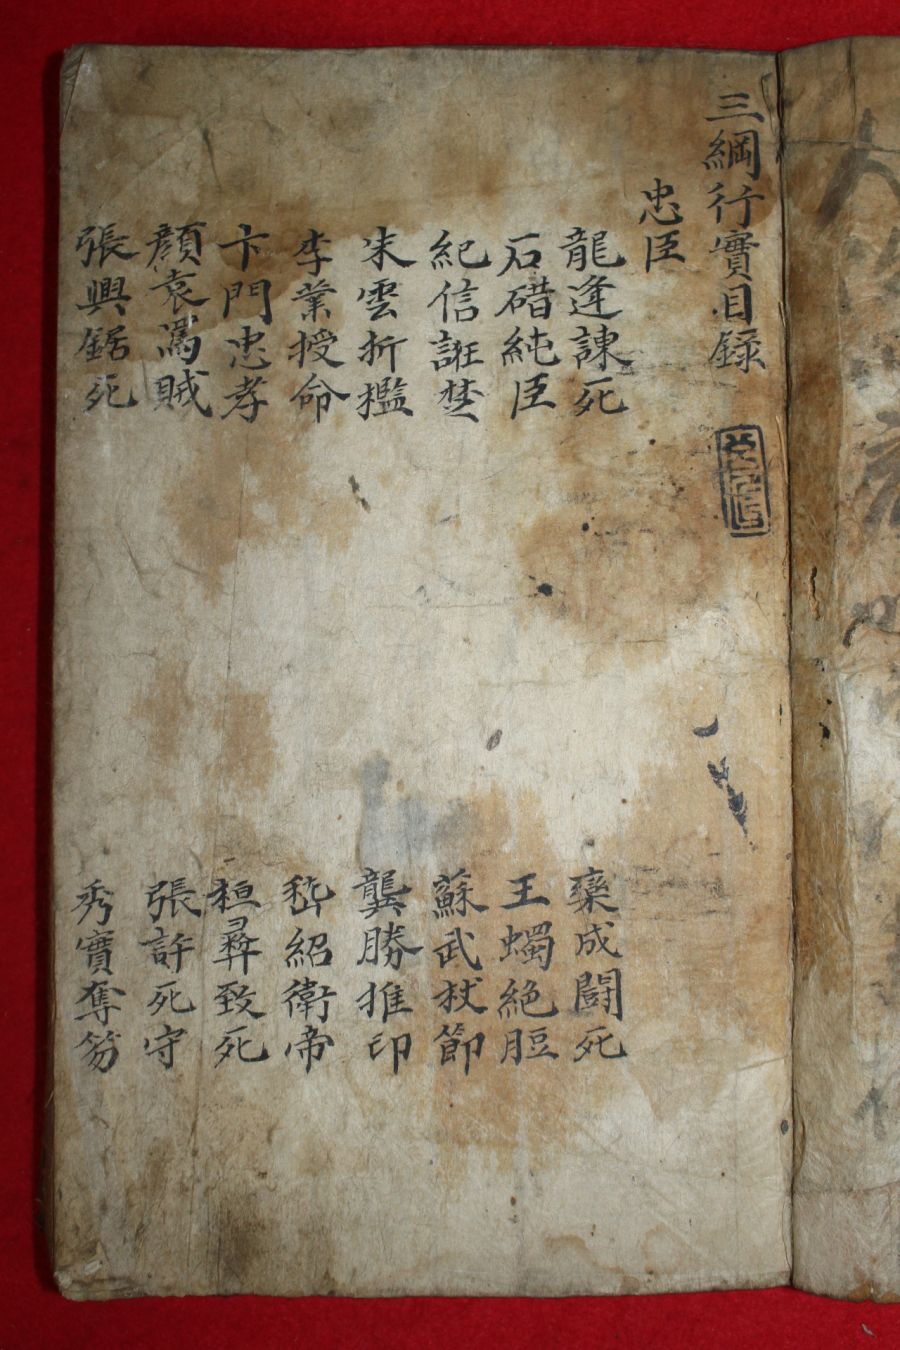 三綱行實目錄
忠臣
龍逄諫死 欒成鬪死
石碏純臣 王蠋絕脰
紀信誑楚 蘇武杖節
朱雲折檻 龔勝推印
李業授命 嵇紹衛帝
卞門忠孝 桓彝致死
顔袁罵賊 張許死守
張興鋸死 秀實奪笏